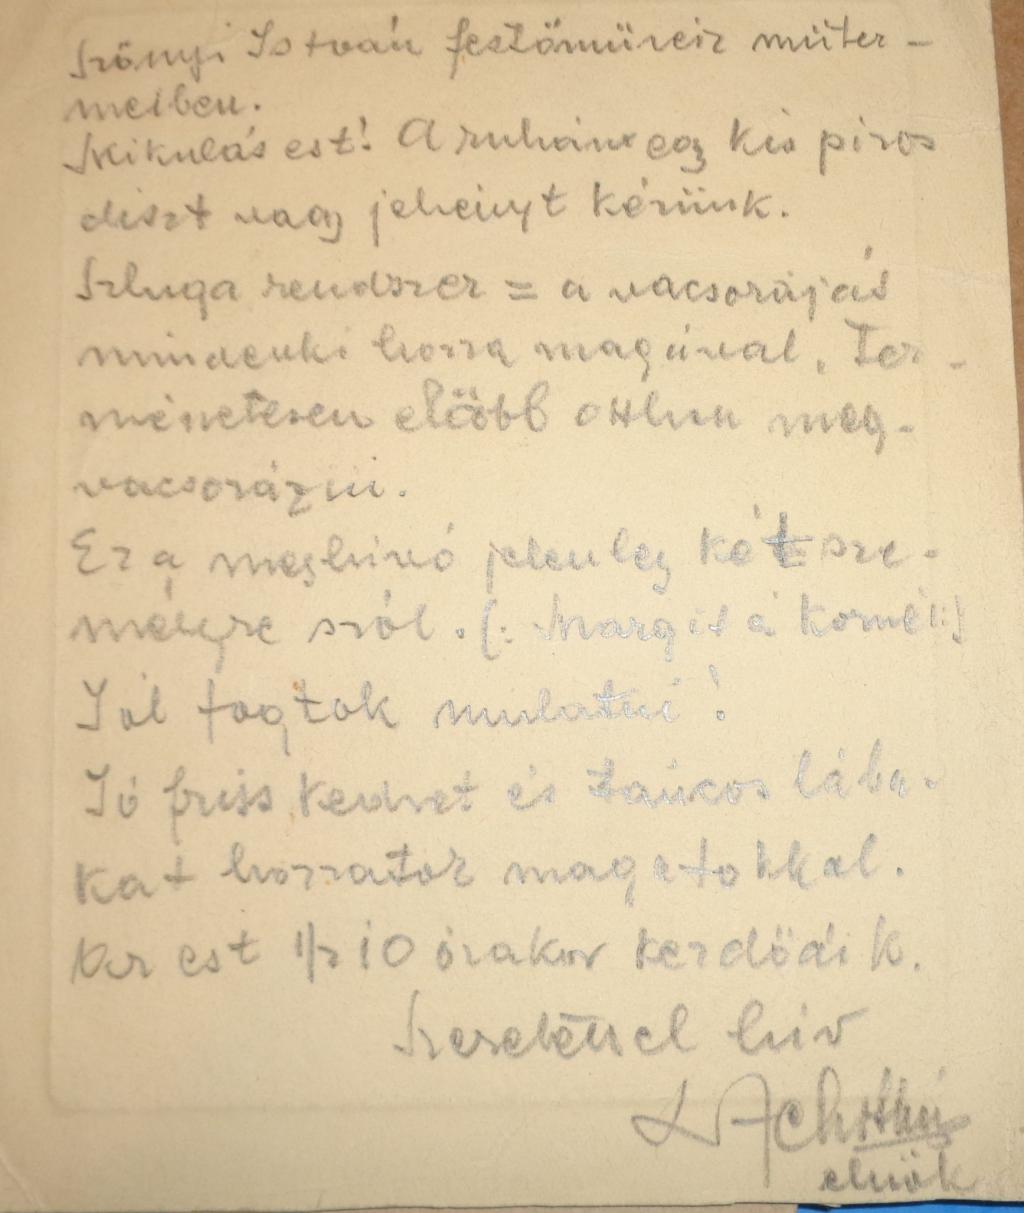 Szőnyi István festőművész műter-
meiben.
Mikulás est! A ruhán egy kis piros
diszt vagy jelvényt kérünk.
Szluga rendszer = a vacsoráját
mindenki hozza magával. Ter-
mészetesen előbb otthon meg-
vacsorázni.
Ez a meghívó jelenleg két sze-
mélyre szól. (: Margit á Kornél:)
Jól fogtok mulatni!
Jó friss kedvet és táncos lába-
kat hozzatok magatokkal.
Az est 1/2 10 órakor kezdődik.
Szeretettel hív
elnök